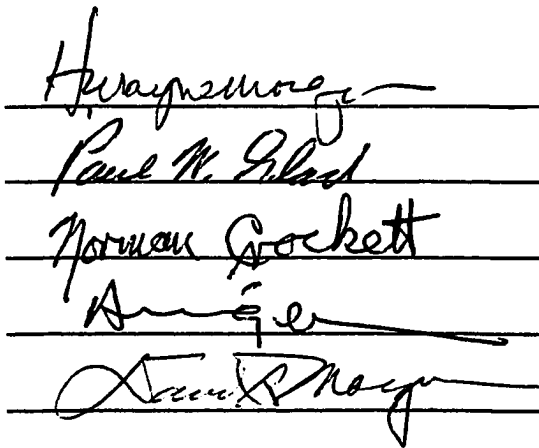 H. Wayne Morgan
Paul W. Glad
Norman Crockett
David Morgan